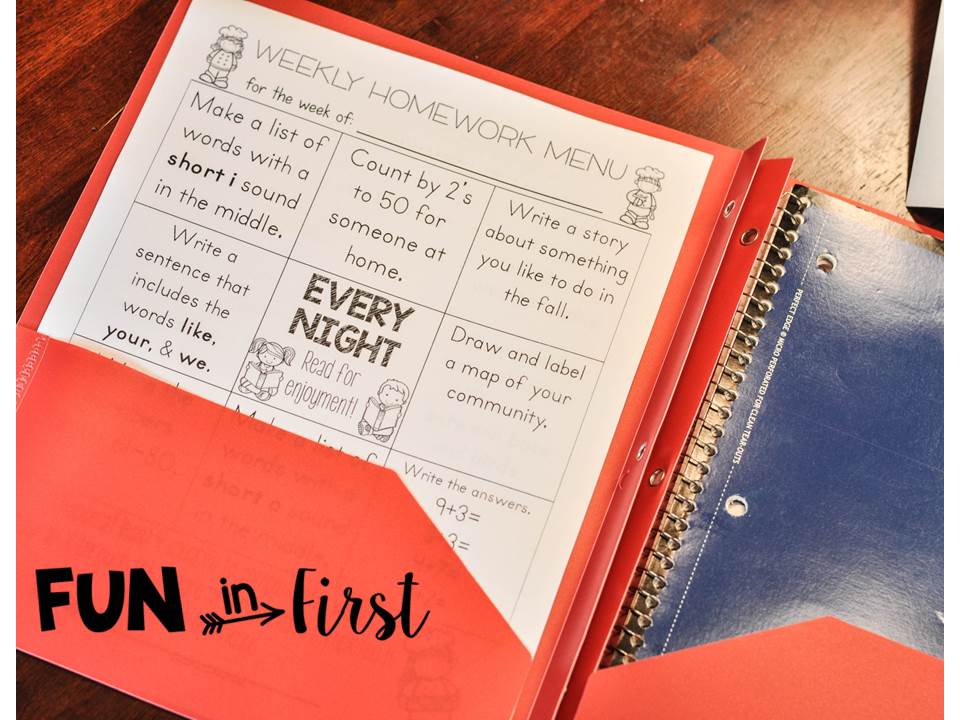 WEEKLY HOMEWORK MENU
for the week of:
Make a list of
words with a
short i sound
in the middle.
Count by 2's
to 50 for
someone at
home.
Write a story
about something
you like to do in
the fall.
Write a
sentence that
includes the
words like,
your, & we.
EVERY
NIGHT
Read for
enjoyment!
Draw and label
a map of your
community.
Make a list of
words with a
short a sound
in the middle.
Write the answers.
9+3=
3=
PERFECT EDGE ® MICRO PERFORATED FOR CLEAN TEAR-OUTS
FUN in First